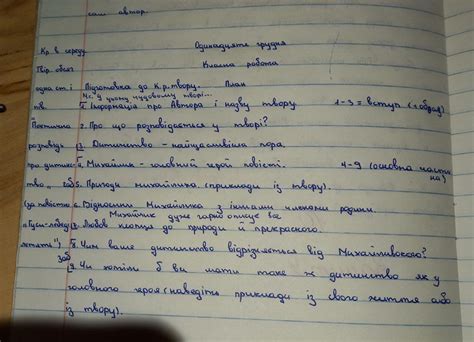 сам автор.
Одинадцяте грудня
Кр. в середу. Класна робота
Твір. обсяг
одна ст і Підготовка до К.р.твору. План
ч.с. У цьому чудовому творі...
тв. 1. Інформація про Автора і назву твору 1-3 = вступ (1 абзац)
Поетична 2. Про що розповідається у творі?
розповідь 3. Дитинство - найщасливіша пора.
про дитин- 4. Михайлик - головний герой повісті. 4-9 (основна частина)
тво" 5. Пригоди михайлика (приклади із твору).
(за повістю 6. Відносини Михайлика з іншими членами родини.
Михайлик дуже гарно описує все
"Гуси-лебеді 7. Любов хлопця до природи й прекрасного.
летять") 8. Чим ваше дитинство відрізняється від Михайликового?
9. Чи хотіли б ви мати таке ж дитинство як у
головного героя (наведіть приклади із свого життя або
із твору).